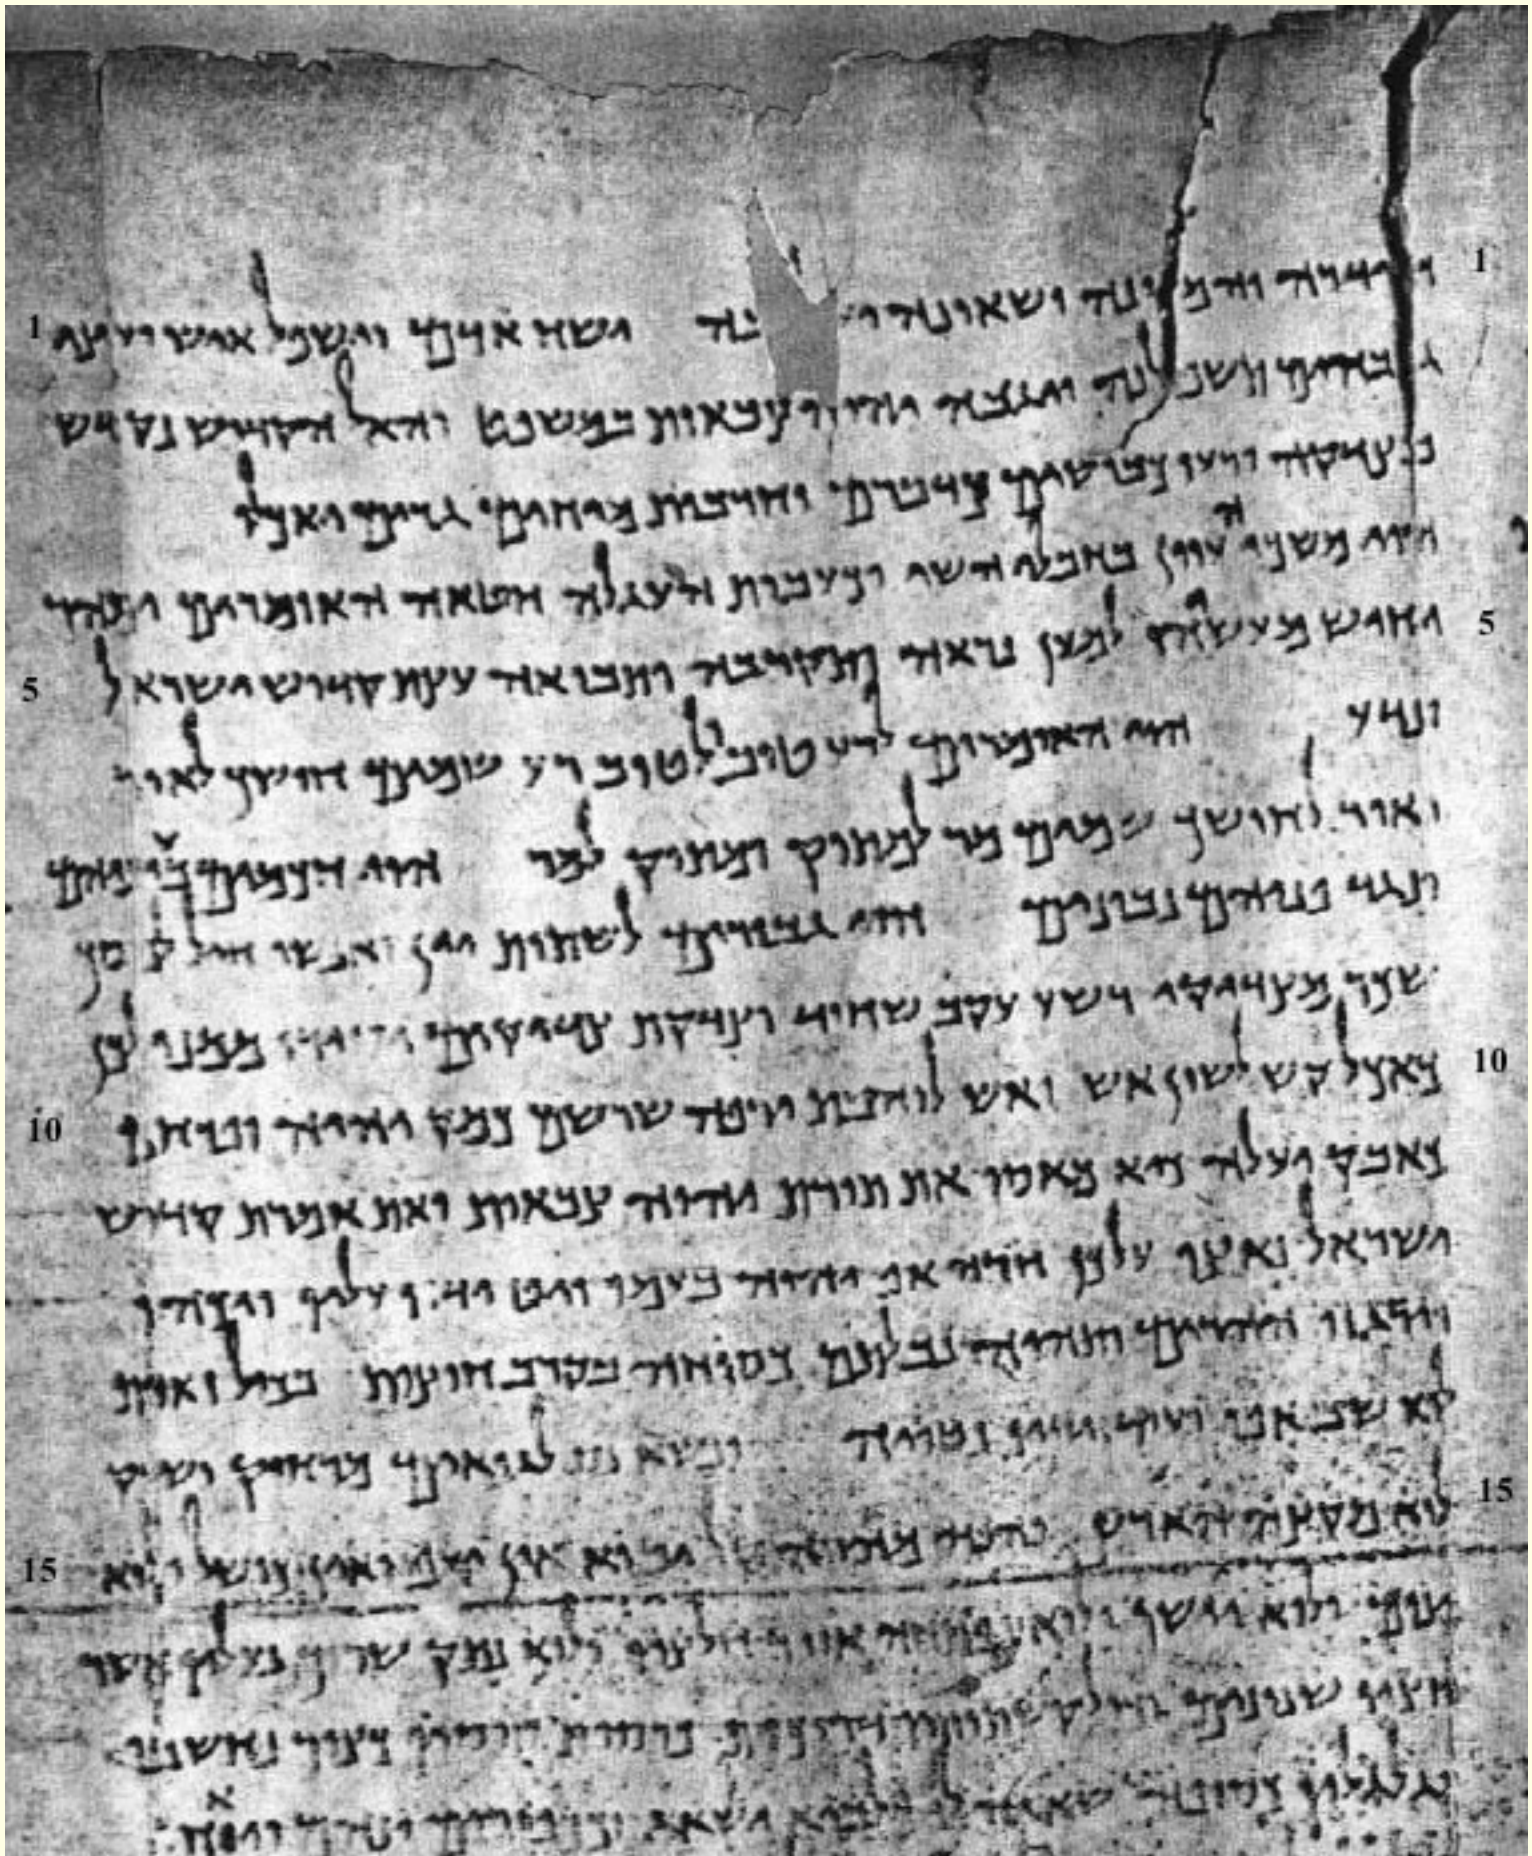 והדרה והמונה ושאונה בה ישח אדם וישפל איש ועיני
גבהים תשפלנה ויגבה יהוה צבאות במשפט והאל הקדוש נקדש
בצדקה ורעו כבשים וחרבות מיחים גרים יאכלו
הוי משכי העוון בחבלי השי וכעבות העגלה חטאה האומרים ימהר
יחיש מעשיהו למען נראה ותקרבה ותבואה עצת קדוש ישראל
ונדע הוי האומרים לרע טוב ולטוב רע שמים חושך לאור
ואור לחושך שמים מר למתוק ומתוק למר הוי חכמים בעיניהם
ונגד פניהם נבונים הוי גבורים לשתות יין ואנשי חיל מסך
שכר מצדיקי רשע עקב שוחד וצדקת צדיקים יסירו ממנו לכן
כאכל קש לשון אש ואש לוהבת שרשם כמק יהיה ופרחם
כאבק יעלה כיא מאסו את תורת יהוה צבאות ואת אמרת קדוש
ישראל נאצו על כן חרה אף יהוה בעמו ויט ידיו עליו ויכהו
וירגזו ההרים ותהיה נבלתם כסוחה בקרב חוצות בכל זאות
לוא שב אפו ועוד ידיו נטויה ונשא נס לגואים מרחוק ושרק
לוא מקצה הארץ והנה מהרה קל יבוא אין עיף ואין כושל ולוא
ינום ולוא יישן ולוא נפתח אזור חלציו ולוא נתק שרוך נעליו אשר
חציו שנונים וכול קשתותיו דרוכות כצור נחשבו
גלגליו כסופה שאגה לו כלביא ישאג
1
5
10
15
1
5
10
15